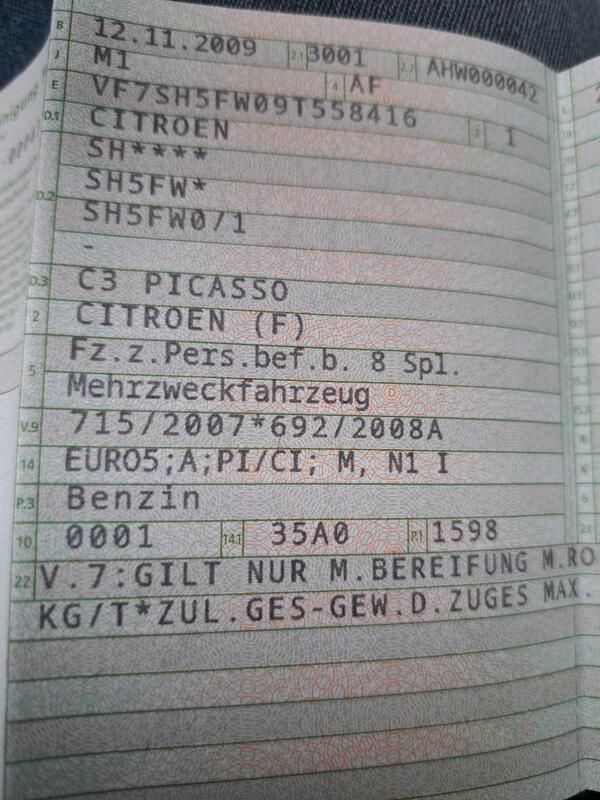 B 12.11.2009 2.1 3001 2.2 AHW000042
J M1 4 AF
E VF7SH5FW09T558416 3 1
D.1 CITROEN
SH****
D.2 SH5FW*
SH5FW0/1
-
D.3 C3 PICASSO
2 CITROEN (F)
5 Fz.z.Pers.bef.b. 8 Spl.
Mehrzweckfahrzeug
V.9 715/2007*692/2008A
14 EURO5;A;PI/CI; M, N1 I
P.3 Benzin
10 0001 14.1 35A0 P.1 1598
22 V.7:GILT NUR M.BEREIFUNG M.RO
KG/T*ZUL.GES-GEW.D.ZUGES MAX.